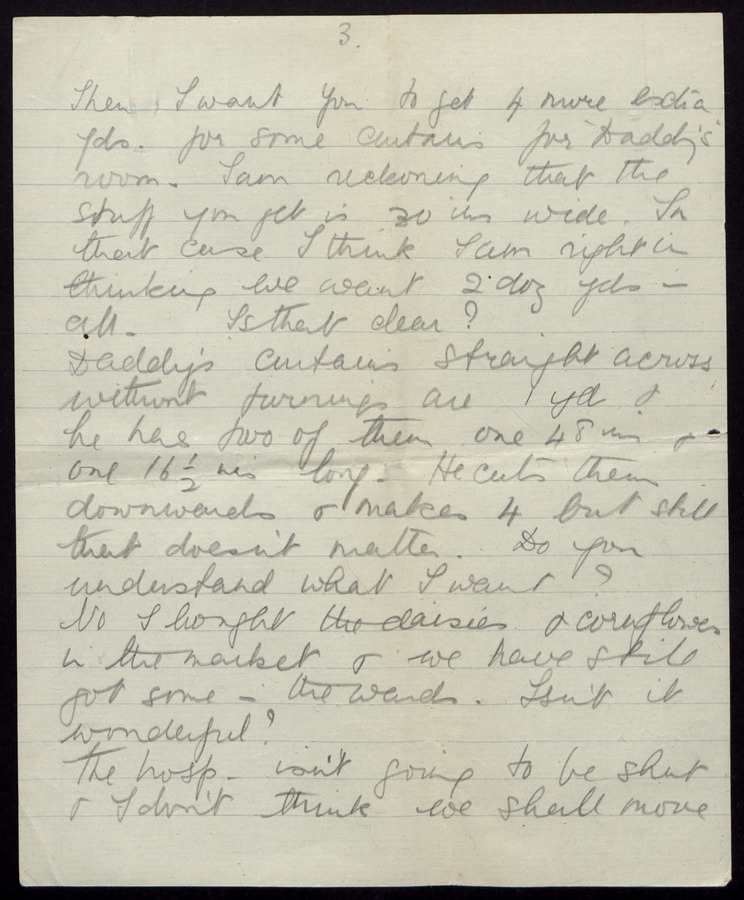 3.
Then, I want you to get 4 more extra
yds. for some curtains for "Daddy's"
room. I am reckoning that the
stuff you get is 30 ins wide. In
that case I think I am right in
thinking we want 2 doz yds –
all. Is that clear?
Daddy's curtains straight across
without turnings are 1 yd &
he has two of them one 48 ins &
one 16½ ins long. He cuts them
downwards & makes 4 but still
that doesn't matter. Do you
understand what I want?
No I bought the daisies & cornflowers
in the market & we have still
got some – the wards. Isn't it
wonderful?
The hosp. isn't going to be shut
& I don't think we shall move